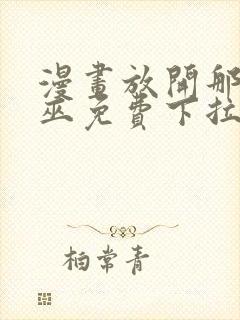 漫畫放開那
巫免費下拉
柏常青